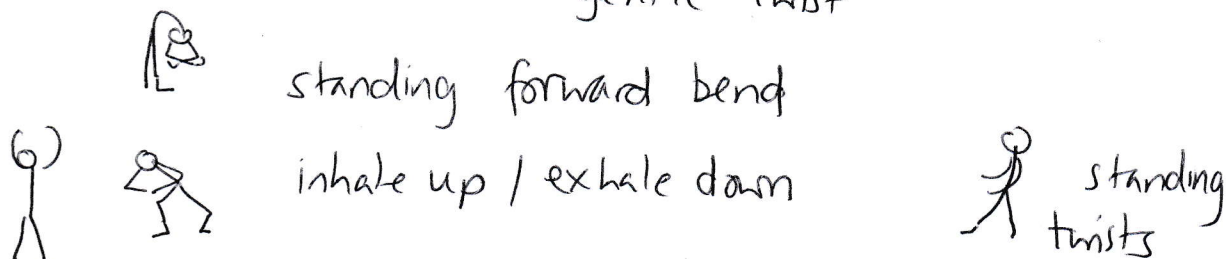 twist
standing forward bend
inhale up / exhale down
standing
twists